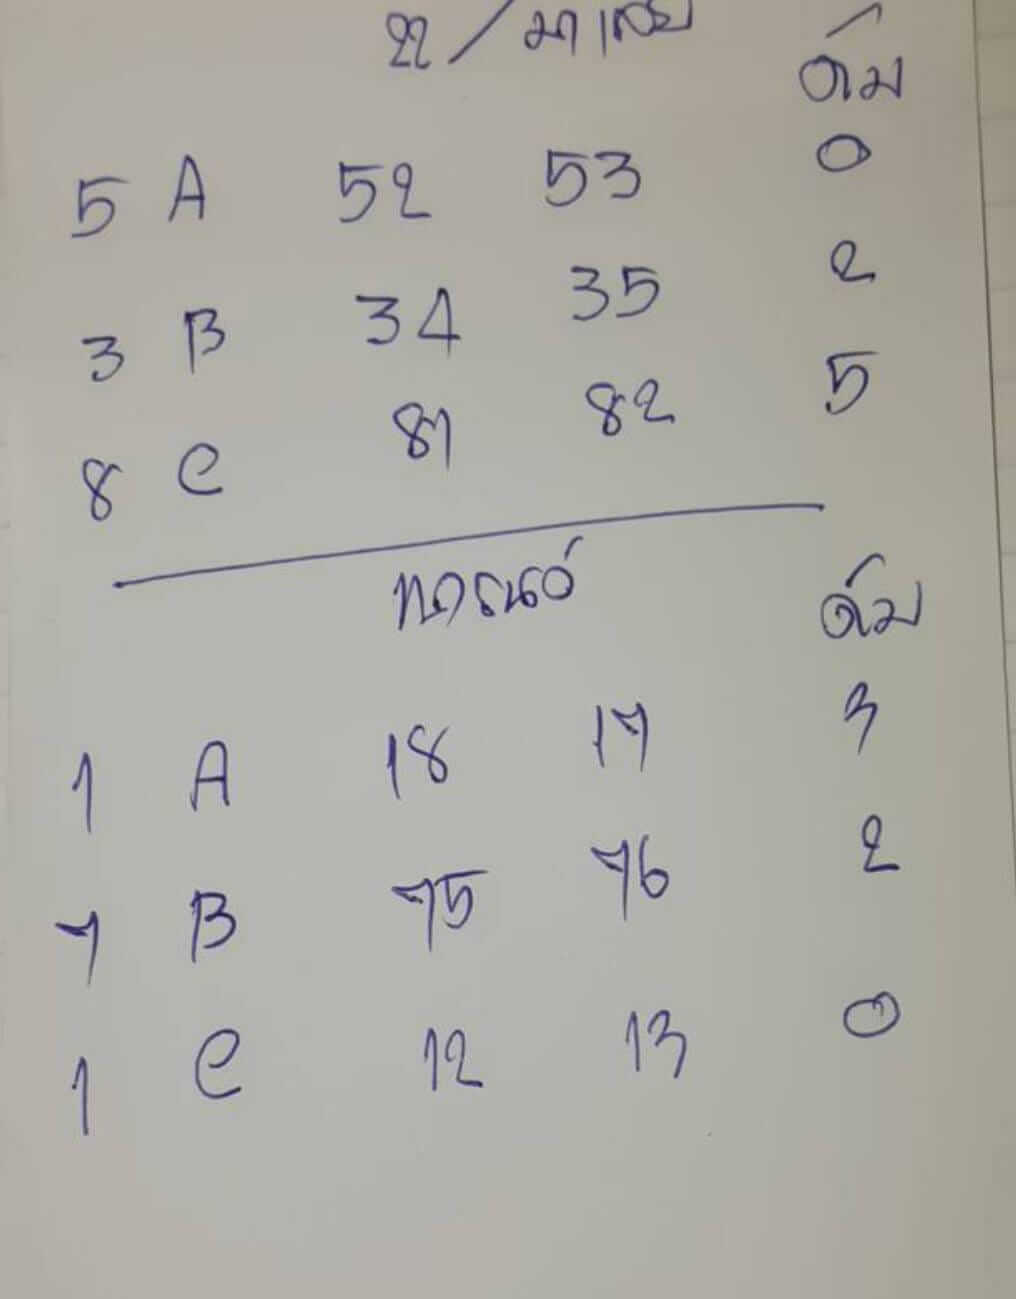 22 / มาเลย์ ดับ
5 A 52 53 0
3 B 34 35 2
8 C 81 82 5
ดับ
1 A 18 17 3
7 B 75 76 2
1 C 12 13 0